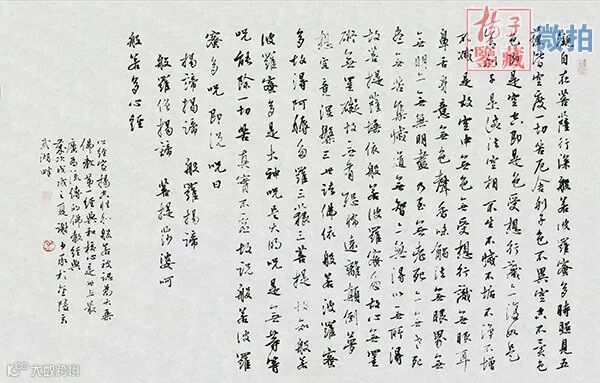 觀自在菩薩行深般若波羅蜜多時照見五
蘊皆空度一切苦厄舍利子色不異空空不異色
色即是空空即是色受想行識亦復如是
舍利子是諸法空相不生不滅不垢不淨不增
不減是故空中無色無受想行識無眼耳
鼻舌身意無色聲香味觸法無眼界無
無明亦無無明盡乃至無老死亦無老死
盡無苦集滅道無智亦無得以無所得
故菩提薩埵依般若波羅蜜多故心無罣
礙無罣礙故無有恐怖遠離顛倒夢
想究竟涅槃三世諸佛依般若波羅蜜
多故得阿耨多羅三藐三菩提故知般若
波羅蜜多是大神咒是大明咒是無等等
咒能除一切苦真實不虛故說般若波羅
蜜多咒即說咒曰
揭諦揭諦 般羅揭諦
般羅僧揭諦 菩提莎婆呵
般若多心經
心經 般若被認為大乘
佛教第一經典和核心是世上最
廣為流傳的佛教經典
歲次戊戌之夏謝 於金陵玄
武湖畔
揚子
鑒藏
微拍
大數跨境